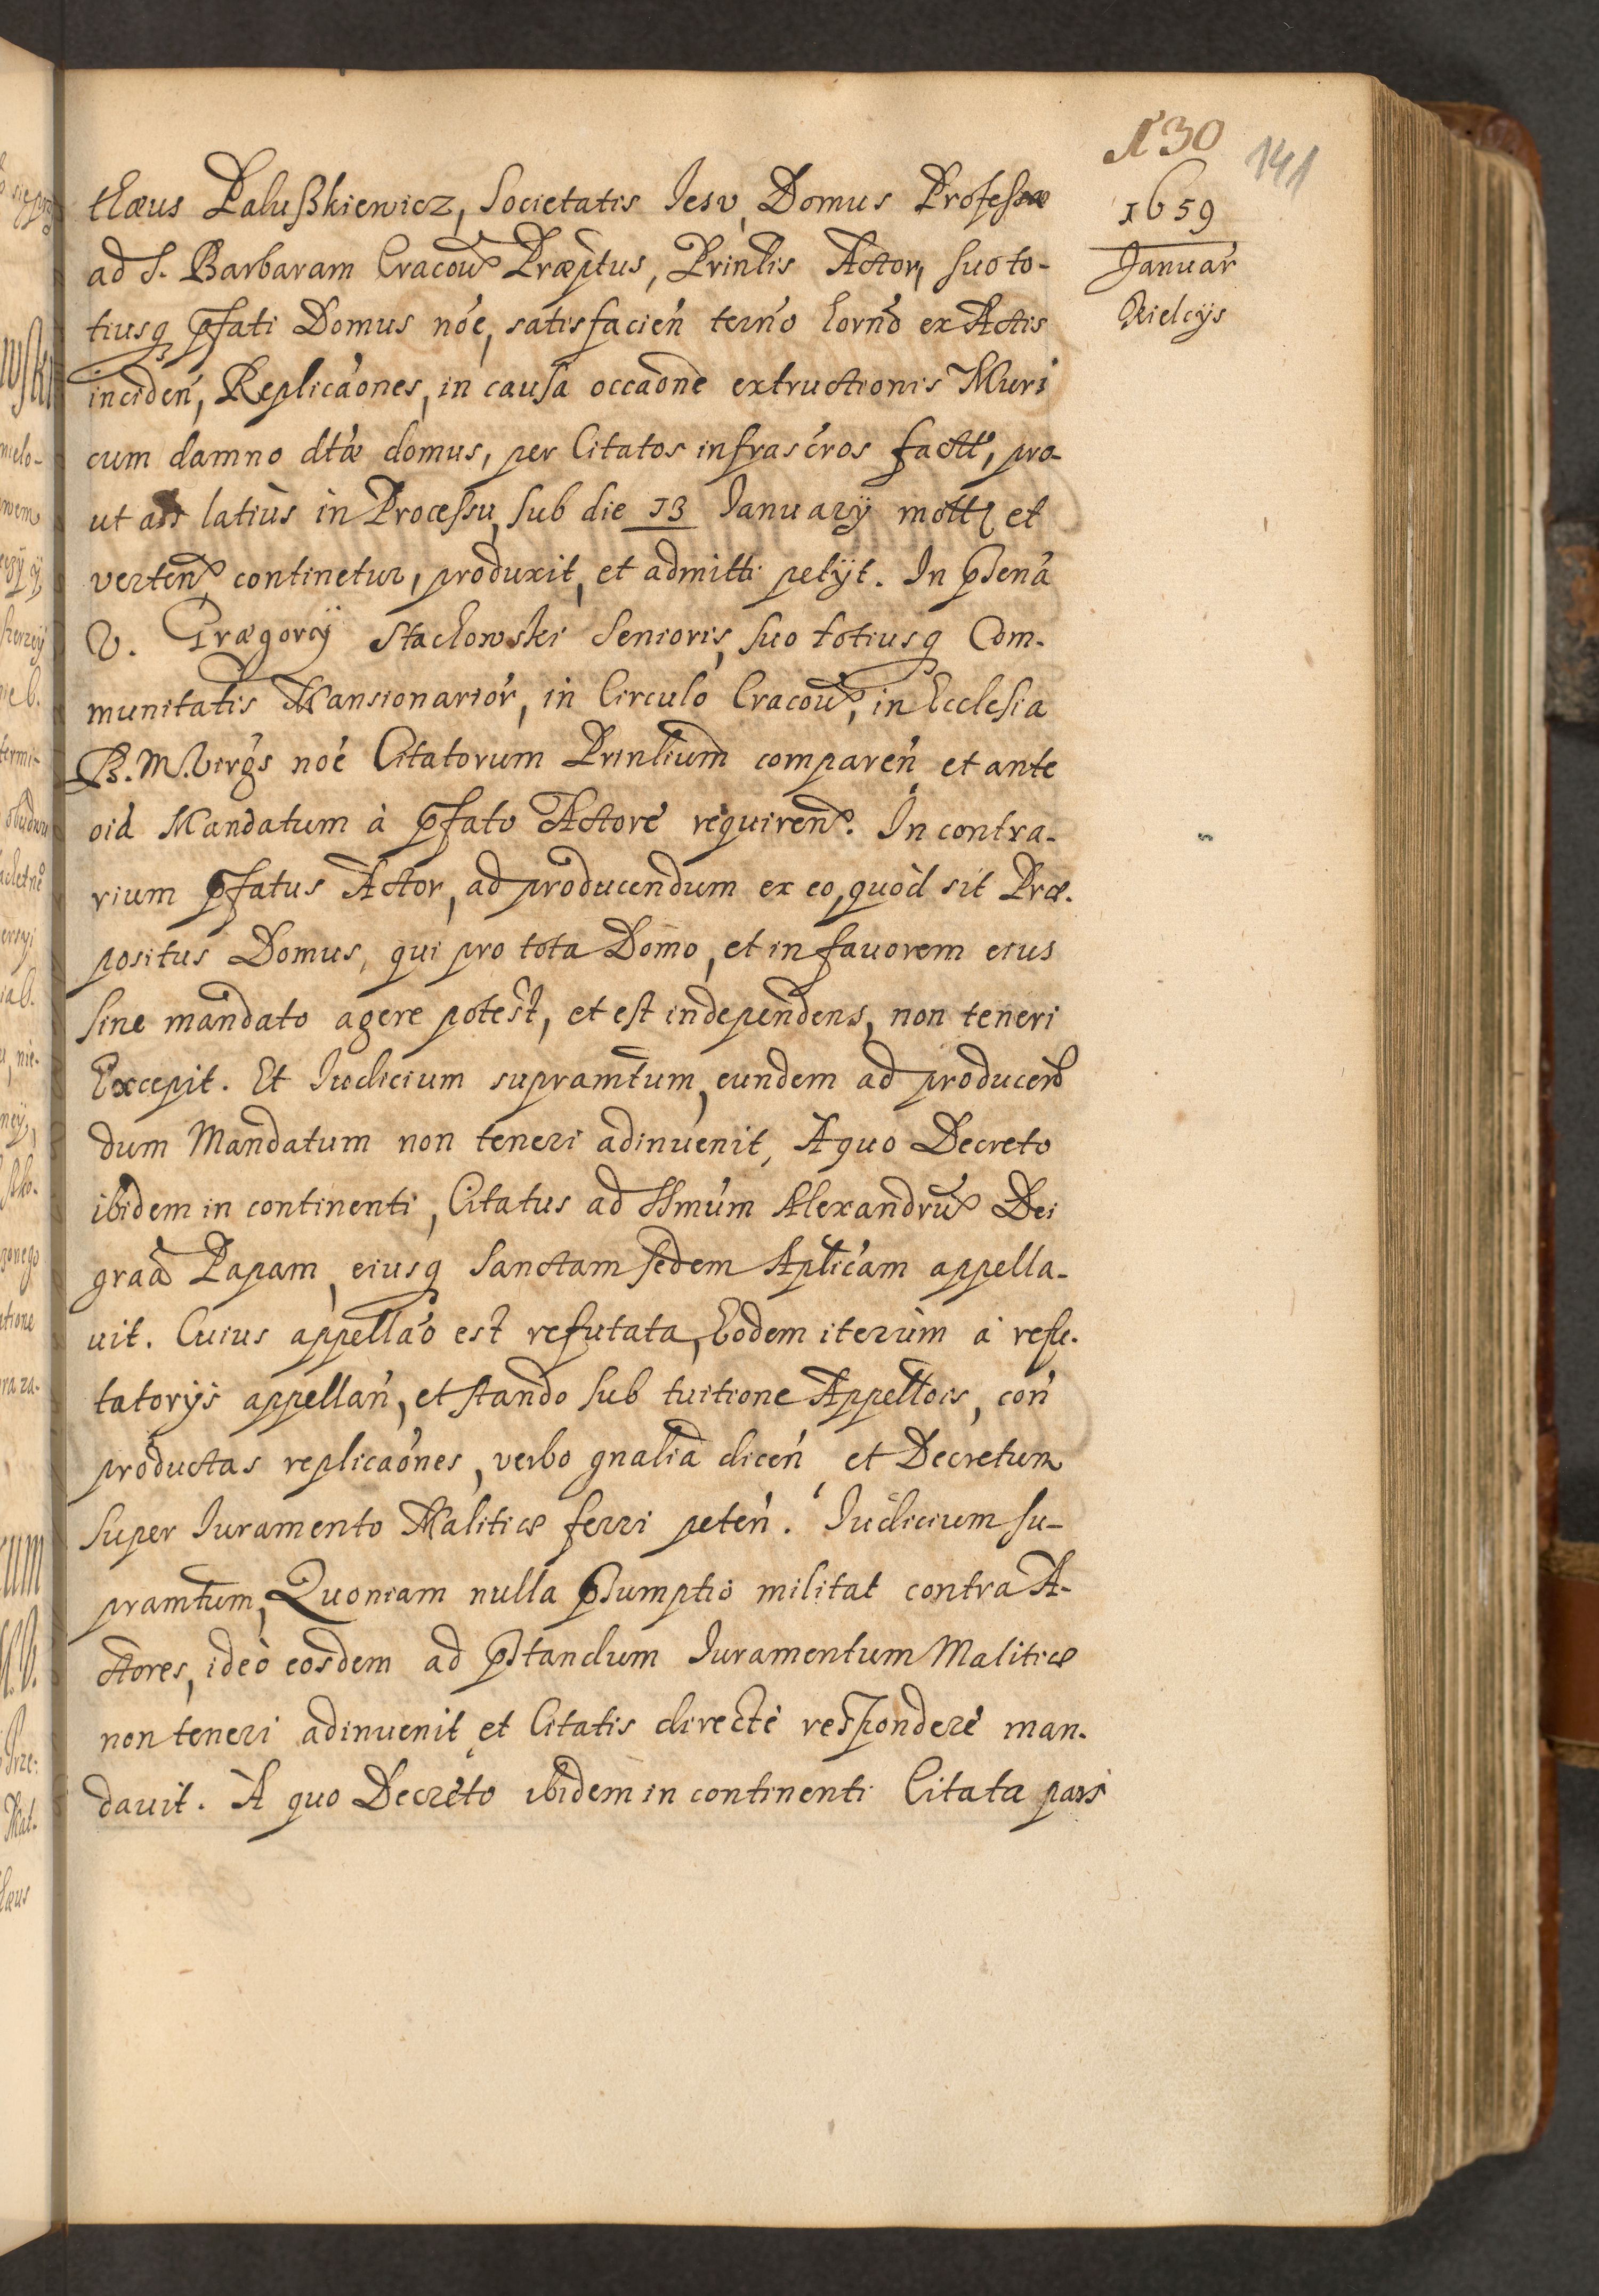 130
141
1659
Januar
Kielcijs
thæus Palußkiewicz, Societatis Iesv, Domus Professæ
ad S. Barbaram Cracoũ Præptus, Prinlis Actor, suo to-
tiusq pfati Domus noe, satisfacien terno hodrno ex Actis
inciden, Replicaones, in causa occaone extructionis Muri
cum damno dtæ domus, per Citatos infrascros factt, pro-
ut latiùs in Processu, sub die 13 Januarÿ mott et
verten continetur, produxit, et admitti petÿt. In psena
V. Grægorÿ Stachowski Senioris, suo totiusq Com-
munitatis Mansionarior, in Circulo Cracoũ, in Ecclesia
B. M. Virgs noe Citatorum Prinlium comparen et ante
oia Mandatum à pfato Actore requiren. In contra-
rium pfatus Actor, ad producendum ex eo, quòd sit Præ-
positus Domus, qui pro tota Domo, et in fauorem eius
sine mandato agere potest, et est independens, non teneri
Excepit. Et Iudicium supramtum, eundem ad producen
dum Mandatum non teneri adinuenit, A quo Decreto
ibidem in continenti, Citatus ad SSmum Alexandrũ Dei
graa Papam, eiusq Sanctam sedem Aplicam appella-
uit. Cuius appellao est refutata, Eodem iterùm à refu-
tatorÿs appellan, et stando sub tuitione Appellois, con
productas replicaones, verbo gnalia dicen et Decretum
super Iuramento Malitiæ ferri peten. Iudicium su-
pramtum, Quoniam nulla psumptio militat contra A-
ctores, ideò eosdem ad pstandum Iuramentum Malitiæ
non teneri adinuenit et Citatis directè respondere man-
dauit. A quo Decreto ibidem in continenti Citata pars